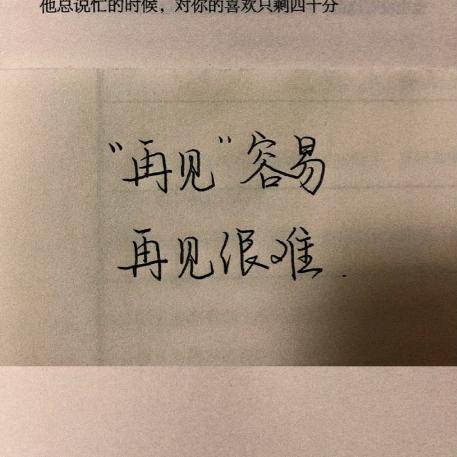 他总说忙的时候，对你的喜欢只剩四十分
“再见”容易
再见很难.